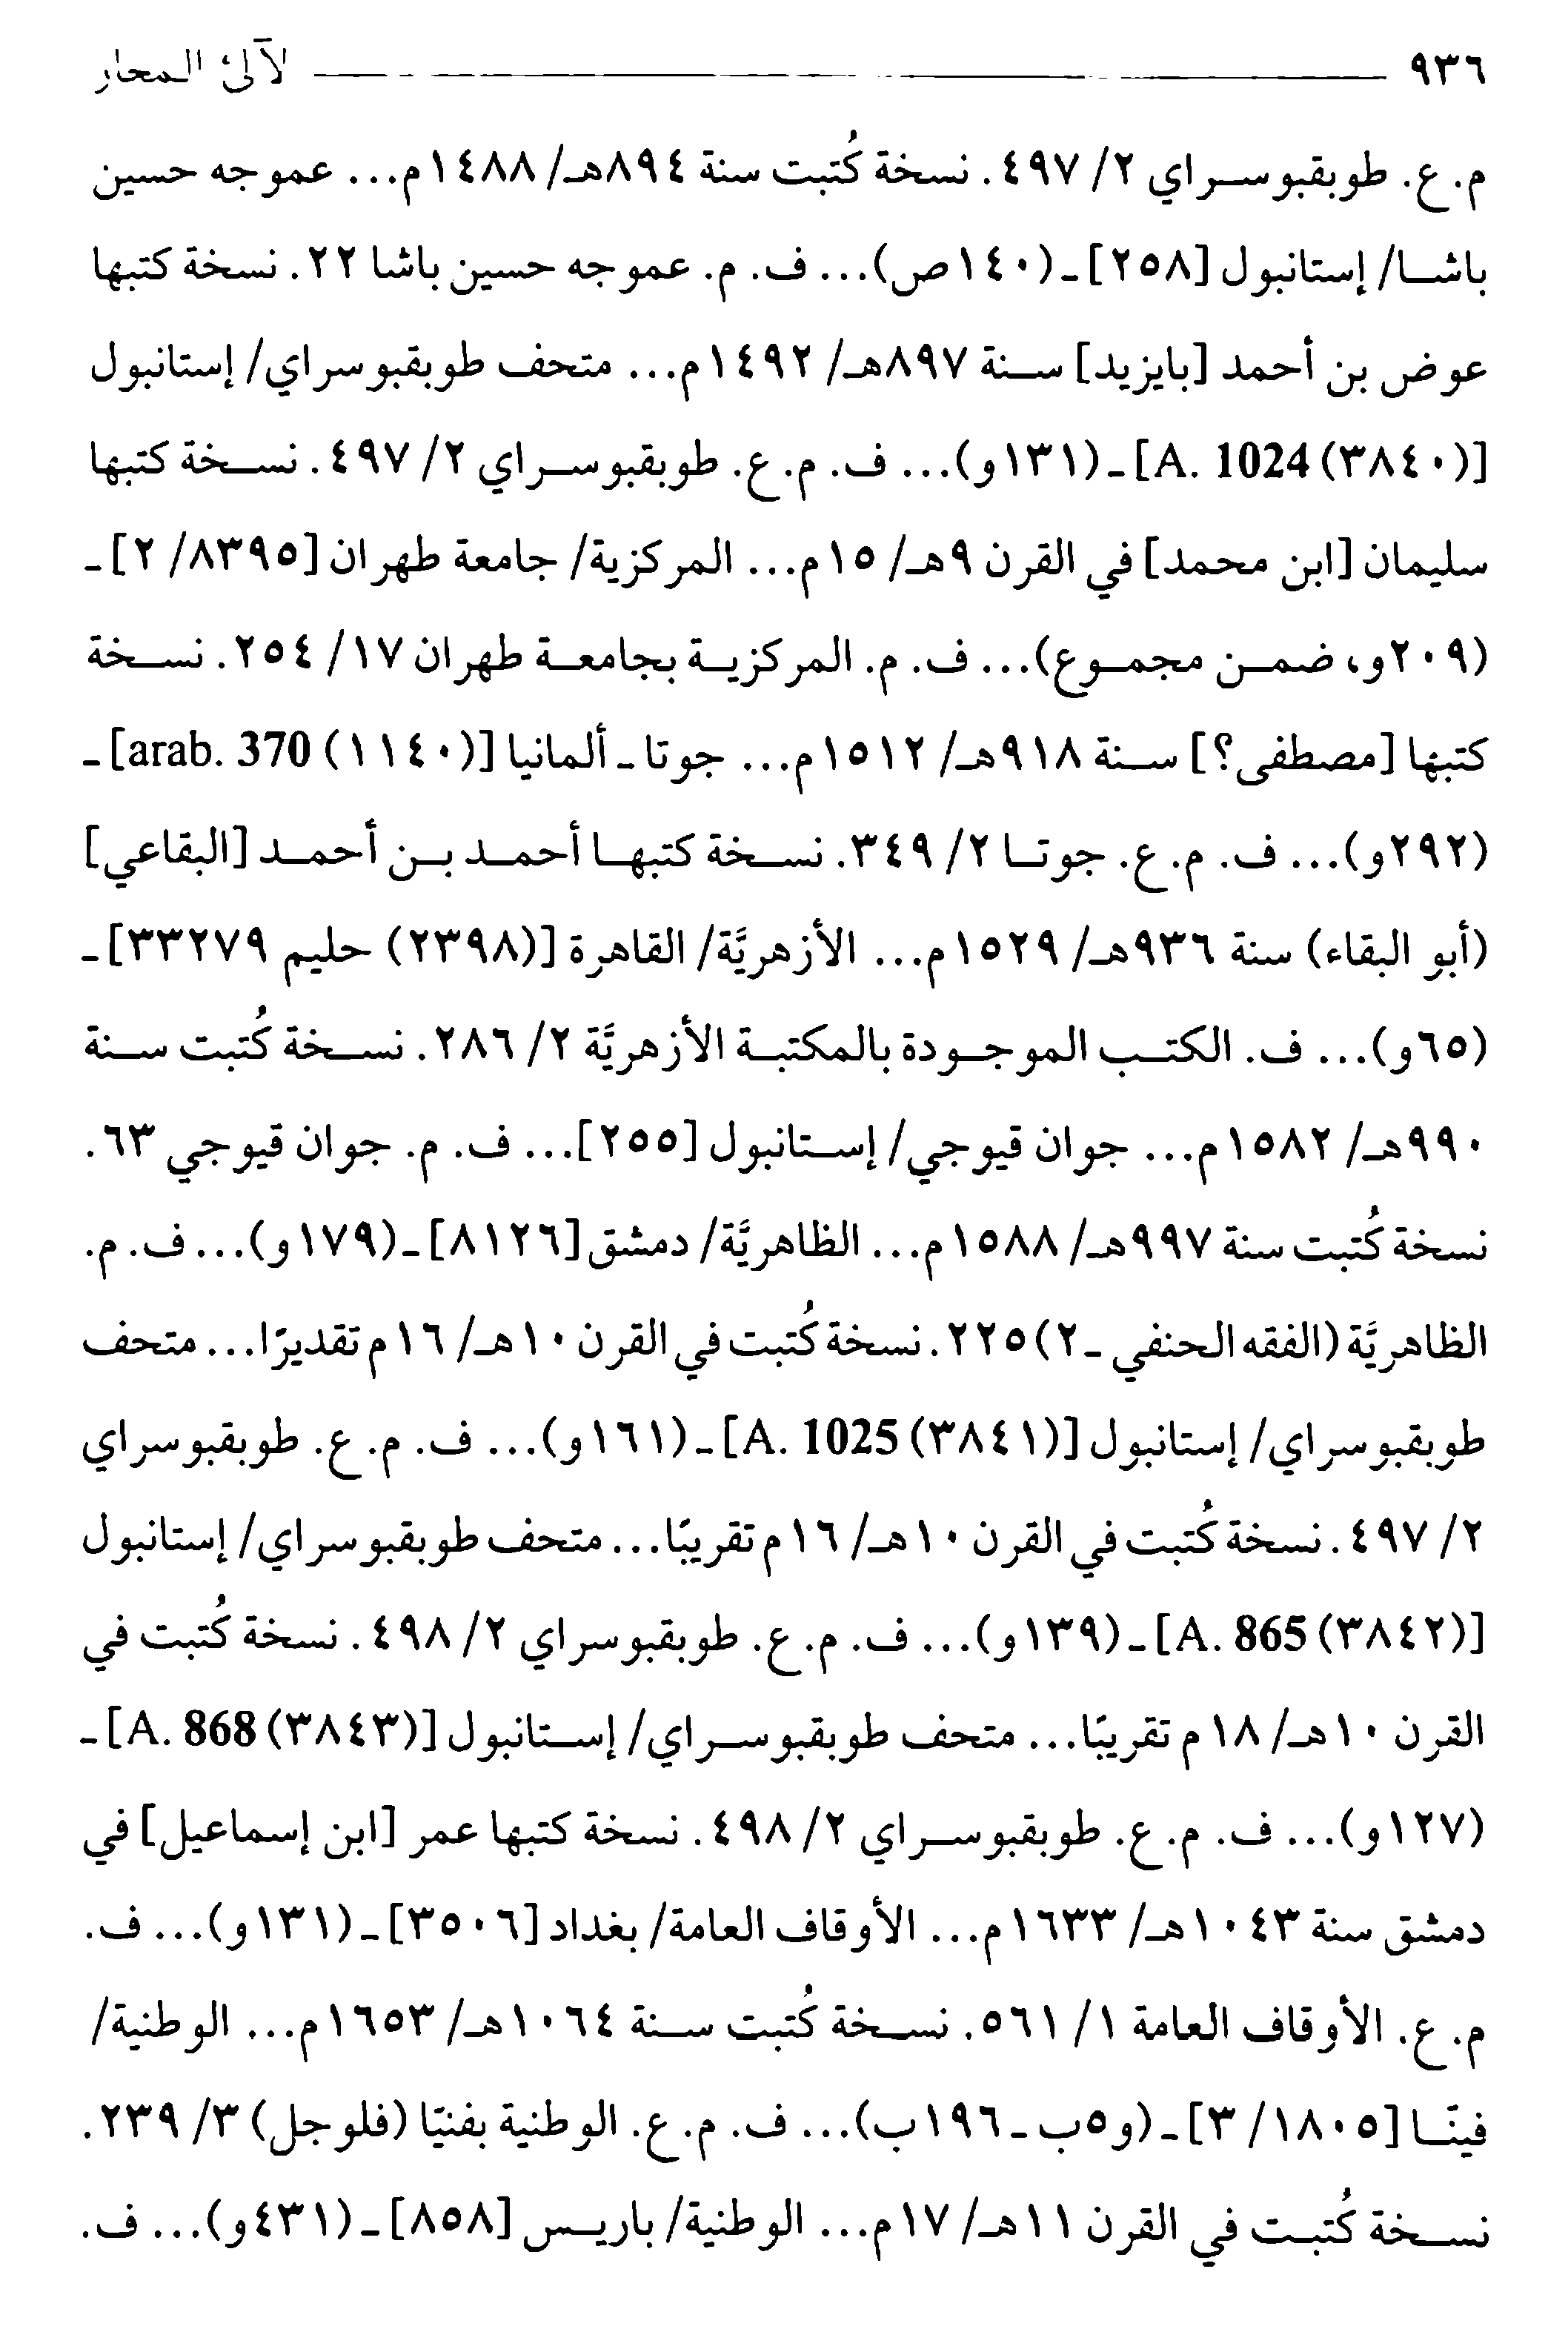 ٩٣٦ لآلئ المحار
م. ع. طوبقبوسراي ٢/ ٤٩٧. نسخة كُتبت سنة ٨٩٤هـ/ ١٤٨٨م... عموجه حسين
باشا/ إستانبول [٢٥٨] ـ (١٤٠ص)... ف. م. عموجه حسين باشا ٢٢. نسخة كتبها
عوض بن أحمد [بايزيد] سنة ٨٩٧هـ/ ١٤٩٢م... متحف طوبقبوسراي/ إستانبول
[(٣٨٤٠) A. 1024] ـ (١٣١و)... ف. م. ع. طوبقبوسراي ٢/ ٤٩٧. نسخة كتبها
سليمان [ابن محمد] في القرن ٩هـ/ ١٥م... المركزية/ جامعة طهران [٨٣٩٥/ ٢] ـ
(٢٠٩و، ضمن مجموع)... ف. م. المركزية بجامعة طهران ١٧/ ٢٥٤. نسخة
كتبها [مصطفى؟] سنة ٩١٨هـ/ ١٥١٢م... جوتا ـ ألمانيا [(١١٤٠) arab. 370] ـ
(٢٩٢و)... ف. م. ع. جوتا ٢/ ٣٤٩. نسخة كتبها أحمد بن أحمد [البقاعي]
(أبو البقاء) سنة ٩٣٦هـ/ ١٥٢٩م... الأزهريَّة/ القاهرة [(٢٣٩٨) حليم ٣٣٢٧٩] ـ
(٦٥و)... ف. الكتب الموجودة بالمكتبة الأزهريَّة ٢/ ٢٨٦. نسخة كُتبت سنة
٩٩٠هـ/ ١٥٨٢م... جوان قيوجي/ إستانبول [٢٥٥]... ف. م. جوان قيوجي ٦٣.
نسخة كُتبت سنة ٩٩٧هـ/ ١٥٨٨م... الظاهريَّة/ دمشق [٨١٢٦] ـ (١٧٩و)... ف. م.
الظاهريَّة (الفقه الحنفي ـ ٢) ٢٢٥. نسخة كُتبت في القرن ١٠هـ/ ١٦م تقديرًا... متحف
طوبقبوسراي/ إستانبول [(٣٨٤١) A. 1025] ـ (١٦١و)... ف. م. ع. طوبقبوسراي
٢/ ٤٩٧. نسخة كُتبت في القرن ١٠هـ/ ١٦م تقريبًا... متحف طوبقبوسراي/ إستانبول
[(٣٨٤٢) A. 865] ـ (١٣٩و)... ف. م. ع. طوبقبوسراي ٢/ ٤٩٨. نسخة كُتبت في
القرن ١٠هـ/ ١٨م تقريبًا... متحف طوبقبوسراي/ إستانبول [(٣٨٤٣) A. 868] ـ
(١٢٧و)... ف. م. ع. طوبقبوسراي ٢/ ٤٩٨. نسخة كتبها عمر [ابن إسماعيل] في
دمشق سنة ١٠٤٣هـ/ ١٦٣٣م... الأوقاف العامة/ بغداد [٣٥٠٦] ـ (١٣١و)... ف.
م. ع. الأوقاف العامة ١/ ٥٦١. نسخة كُتبت سنة ١٠٦٤هـ/ ١٦٥٣م... الوطنية/
فينّا [١٨٠٥/ ٣] ـ (و٥ب ـ ١٩٦ب)... ف. م. ع. الوطنية بفنيّا (فلوجل) ٣/ ٢٣٩.
نسخة كُتبت في القرن ١١هـ/ ١٧م... الوطنية/ باريس [٨٥٨] ـ (٤٣١و)... ف.